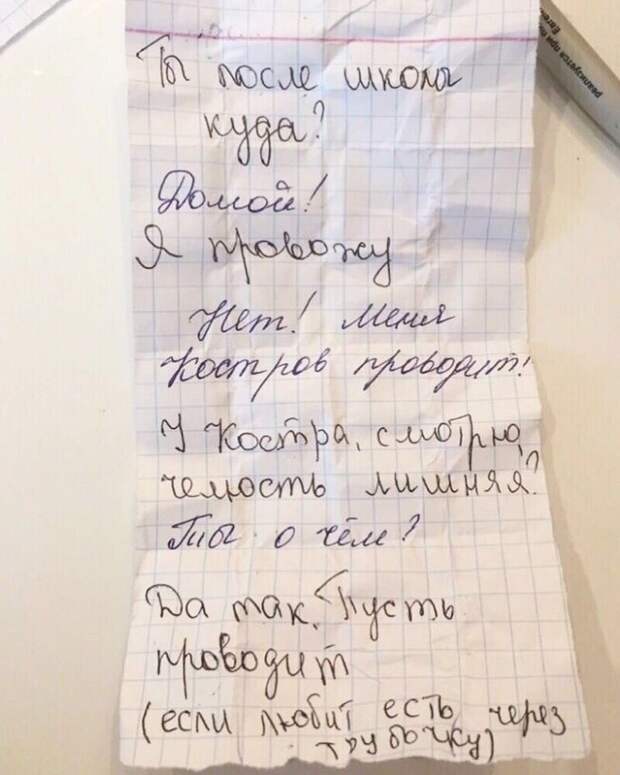 Ты после школы
куда?
Домой!
Я провожу
Нет! Меня
Костров проводит!
У Костра, смотрю,
челюсть лишняя?
Ты о чём?
Да так. Пусть
проводит
(если любит есть через
трубочку)
реализуется при по
Евге